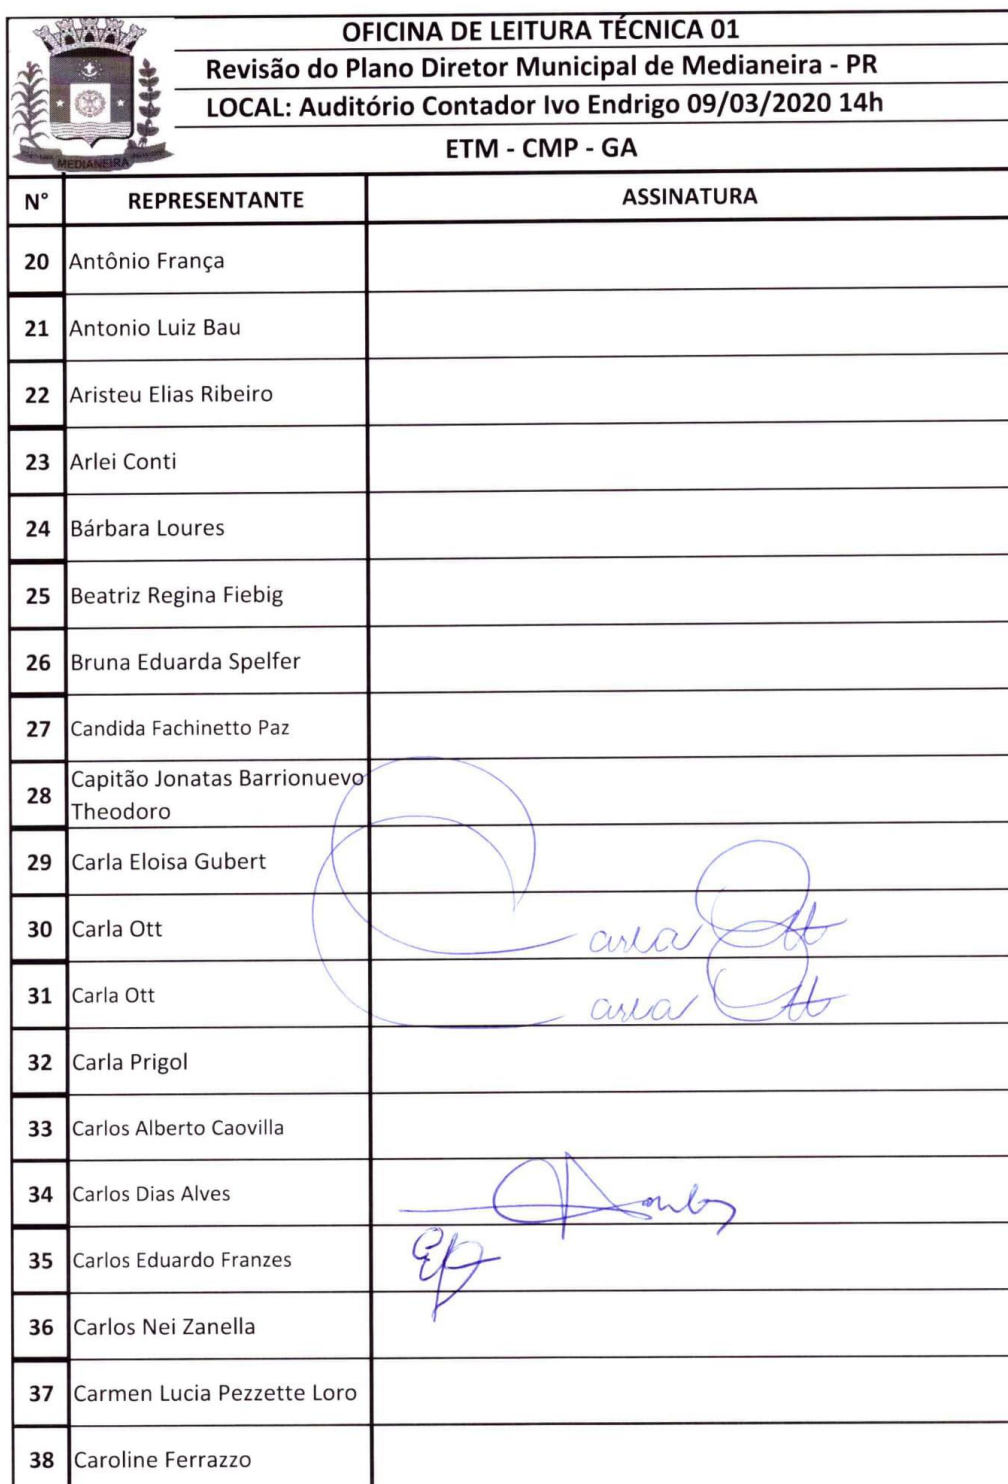 OFICINA DE LEITURA TÉCNICA 01
Revisão do Plano Diretor Municipal de Medianeira - PR
LOCAL: Auditório Contador Ivo Endrigo 09/03/2020 14h
ETM - CMP - GA
MEDIANEIRA
N° REPRESENTANTE ASSINATURA
20 Antônio França
21 Antonio Luiz Bau
22 Aristeu Elias Ribeiro
23 Arlei Conti
24 Bárbara Loures
25 Beatriz Regina Fiebig
26 Bruna Eduarda Spelfer
27 Candida Fachinetto Paz
28 Capitão Jonatas Barrionuevo
Theodoro
29 Carla Eloisa Gubert
30 Carla Ott Carla Ott
31 Carla Ott Carla Ott
32 Carla Prigol
33 Carlos Alberto Caovilla
34 Carlos Dias Alves
35 Carlos Eduardo Franzes
36 Carlos Nei Zanella
37 Carmen Lucia Pezzette Loro
38 Caroline Ferrazzo